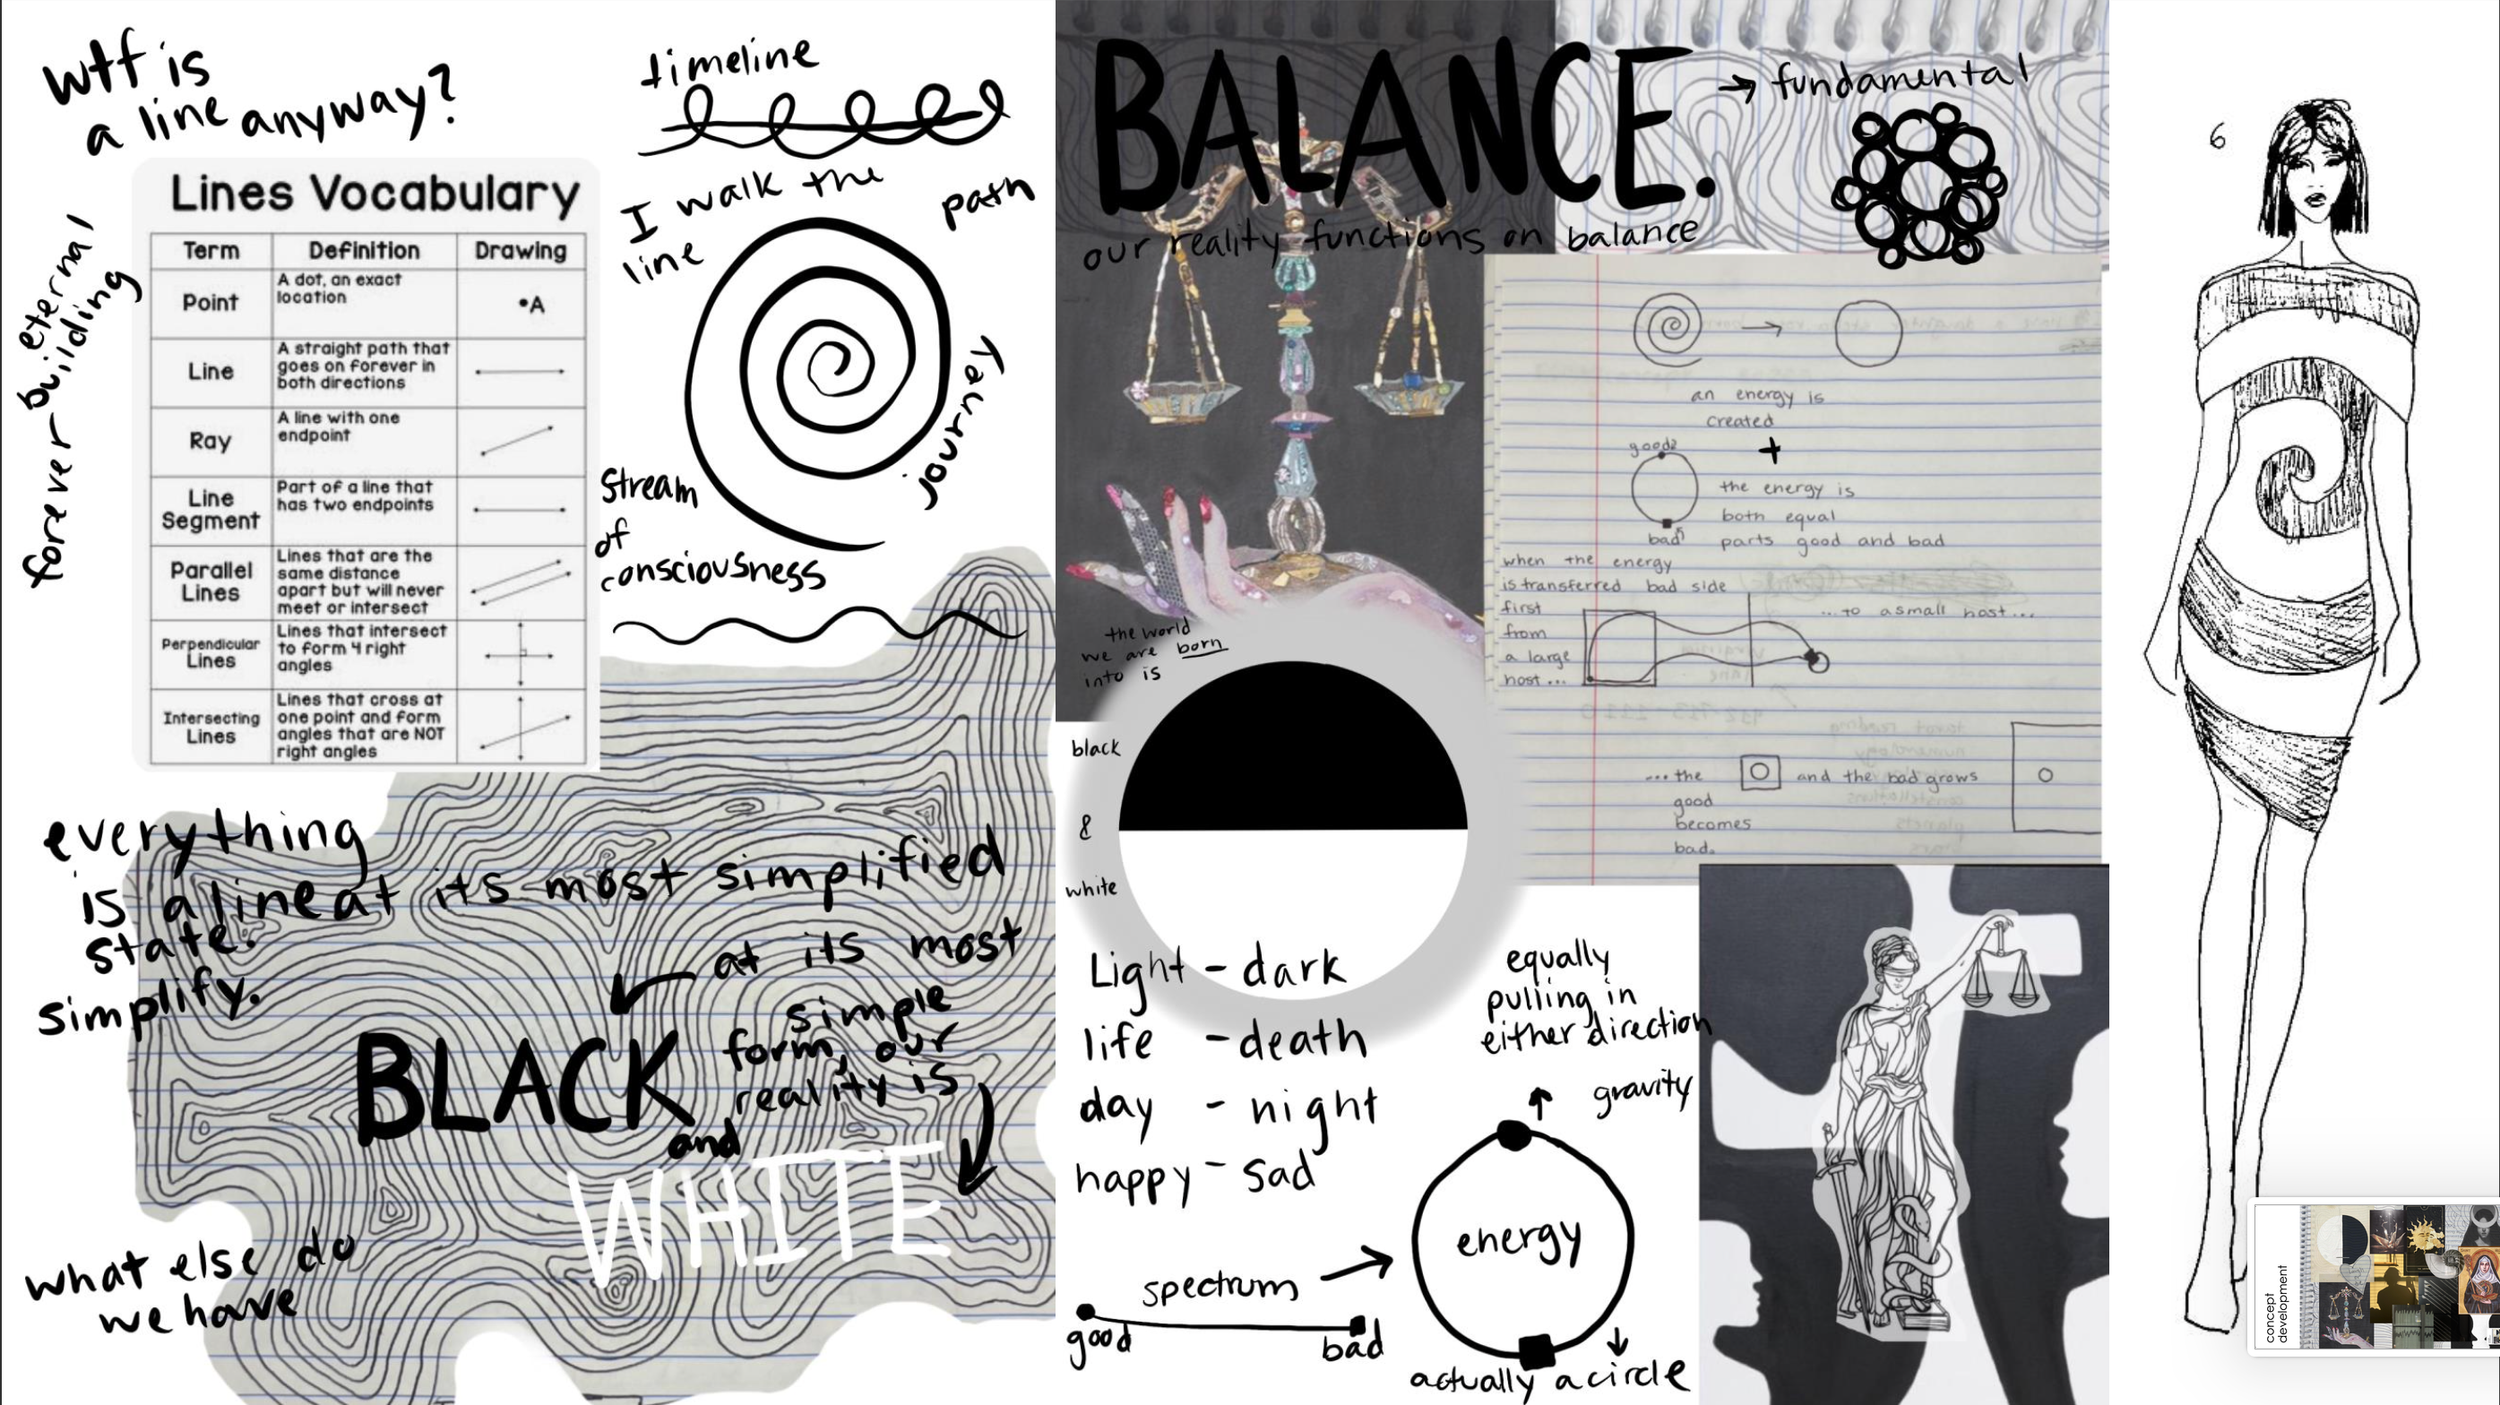 wtf is
a line anyway?
forever building
eternal
Lines Vocabulary
Term Definition Drawing
Point
A dot, an exact
location
•A
Line
A straight path that
goes on forever in
both directions
Ray
A line with one
endpoint
Line
Segment
Part of a line that
has two endpoints
Parallel
Lines
Lines that are the
same distance
apart but will never
meet or intersect
Perpendicular
Lines
Lines that intersect
to form 4 right
angles
Intersecting
Lines
Lines that cross at
one point and form
angles that are NOT
right angles
timeline
I walk the
line
path
journey
stream
of
consciousness
everything
is a line at its most simplified
state.
simplify.
at its most
simple
form, our
reality is
BLACK
and
WHITE
what else do
we have
BALANCE.
→ fundamental
our reality functions on balance
an energy is
created
+
good?
bad?
the energy is
both equal
parts good and bad
when the energy
is transferred bad side
first
from
a large
host...
...to a small host...
...the
good
becomes
bad.
and the bad grows
the world
we are born
into is
black
&
white
Light - dark
life - death
day - night
happy - sad
equally
pulling in
either direction
gravity
energy
spectrum
good
bad
actually a circle
6
concept
development